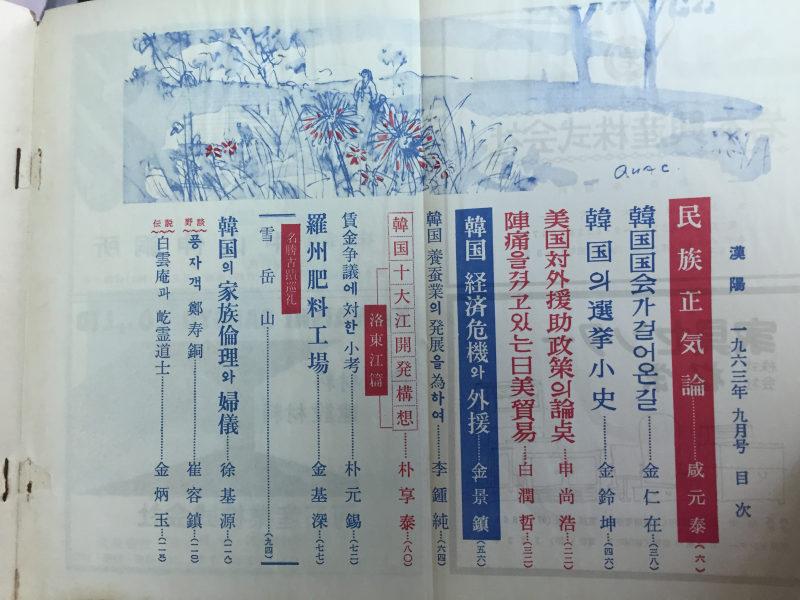 漢陽 一九六三年 九月号 目次
民族正気論……咸元泰(六)
韓国国会가걸어온길……金仁在(三八)
韓国의選挙小史……金鈴坤(四六)
美国対外援助政策의論点……申尚浩(二二)
陣痛을겪고있는日美貿易……白潤哲(三二)
韓国 経済危機와 外援……金景鎮(五六)
韓国 養蚕業의 発展을 為하여……李鍾純(六四)
韓国十大江開発構想……朴享泰(八〇)
洛東江篇
賃金争議에 対한 小考……朴元錫(七二)
羅州肥料工場……金基深(七七)
名勝古蹟巡礼
雪岳山……(九四)
韓国의 家族倫理와 婦儀……徐基源(一一八)
野談
풍자객 鄭寿銅……崔容鎮(一一〇)
伝説
白雲庵과 乾霊道士……金炳玉
auac.